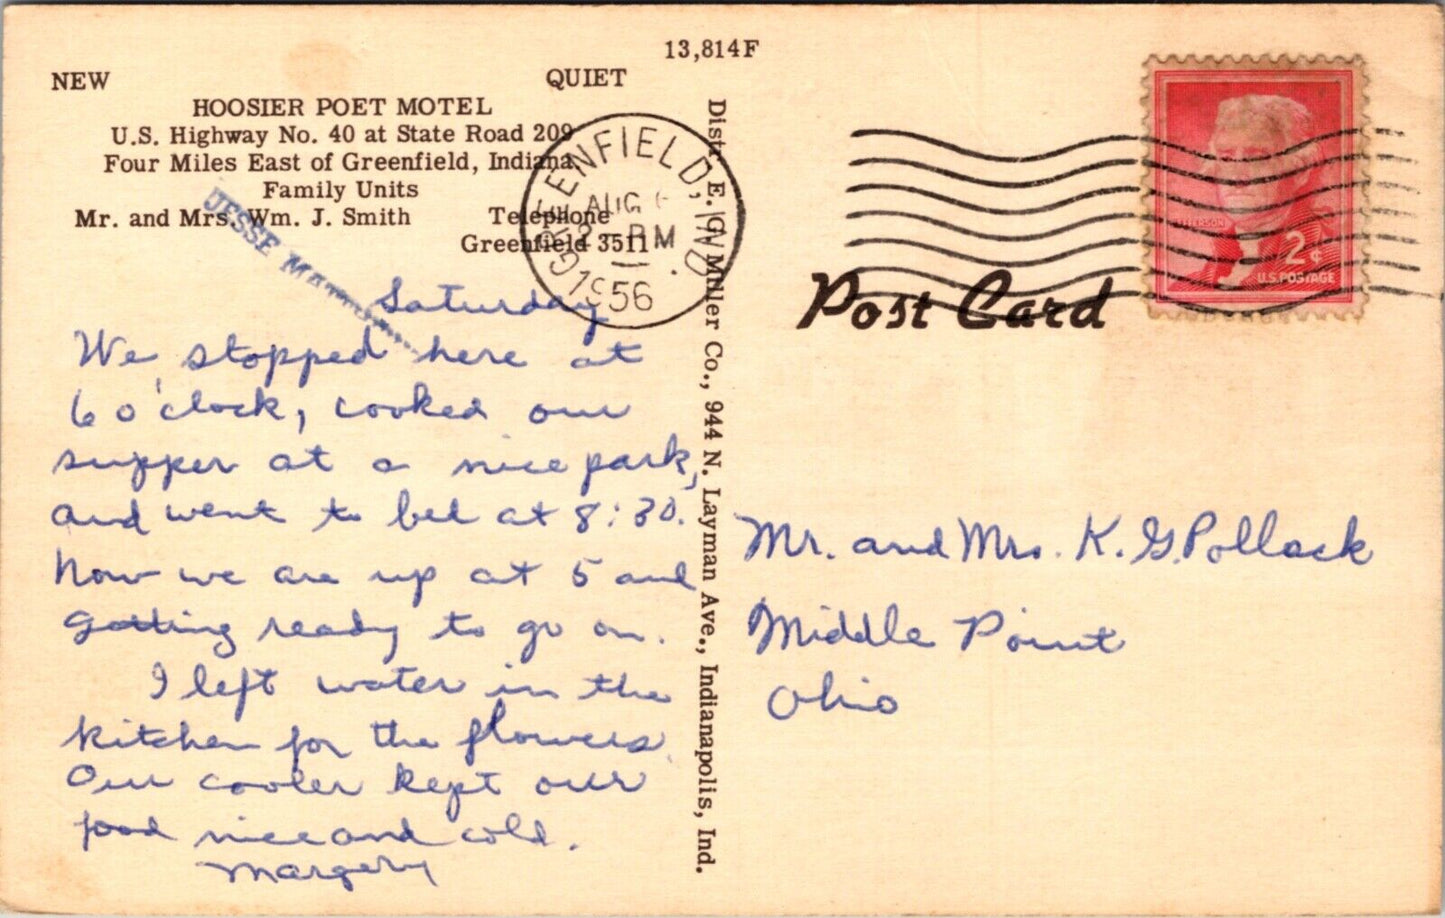 13,814F
NEW QUIET
HOOSIER POET MOTEL
U.S. Highway No. 40 at State Road 209
Four Miles East of Greenfield, Indiana
Family Units
Mr. and Mrs. Wm. J. Smith Telephone
Greenfield 3511
JESSE
GREENFIELD, IND.
AUG
PM
1956
Saturday
We stopped here at
6 o'clock, cooked our
supper at a nice park,
and went to bed at 8:30.
Now we are up at 5 and
getting ready to go on.
I left water in the
kitchen for the flowers.
Our cooler kept our
food nice and cold.
Margery
Distr. E. C. Miller Co., 944 N. Layman Ave., Indianapolis, Ind.
Post Card
JEFFERSON
2¢
U.S. POSTAGE
Mr. and Mrs. K. G. Pollock
Middle Point
Ohio